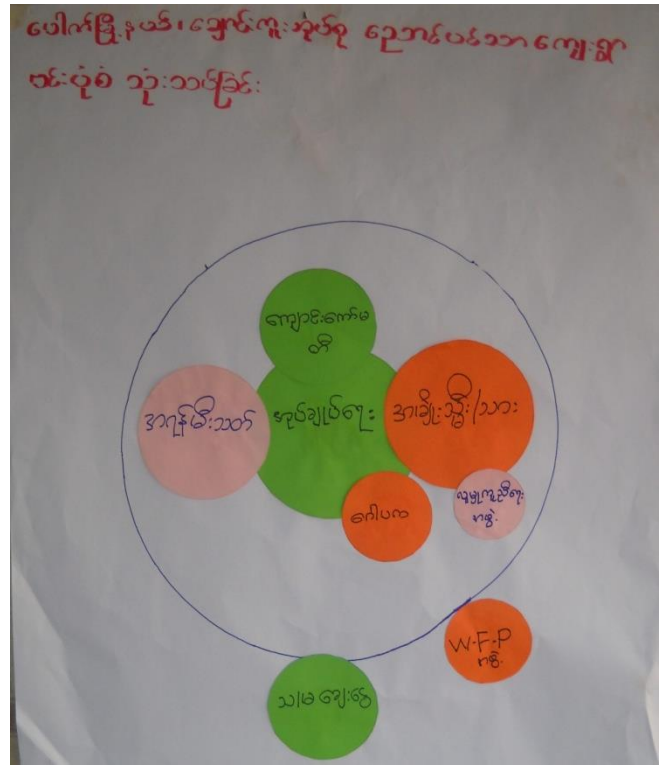 ပေါက်မြို့နယ်၊ချောင်းကူးအုပ်စု ညောင်ပင်သာကျေးရွာ
ဗင်းပုံစံ သုံးသပ်ခြင်း
ကျောင်းကော်မ
တီ
အရန်မီးသတ်
အုပ်ချုပ်ရေး
အမျိုးသ္မီး/သား
ဂေါပက
လူမှုကူညီရေး
အဖွဲ့
W.F.P
အဖွဲ့
သ/မ ချေးငွေ